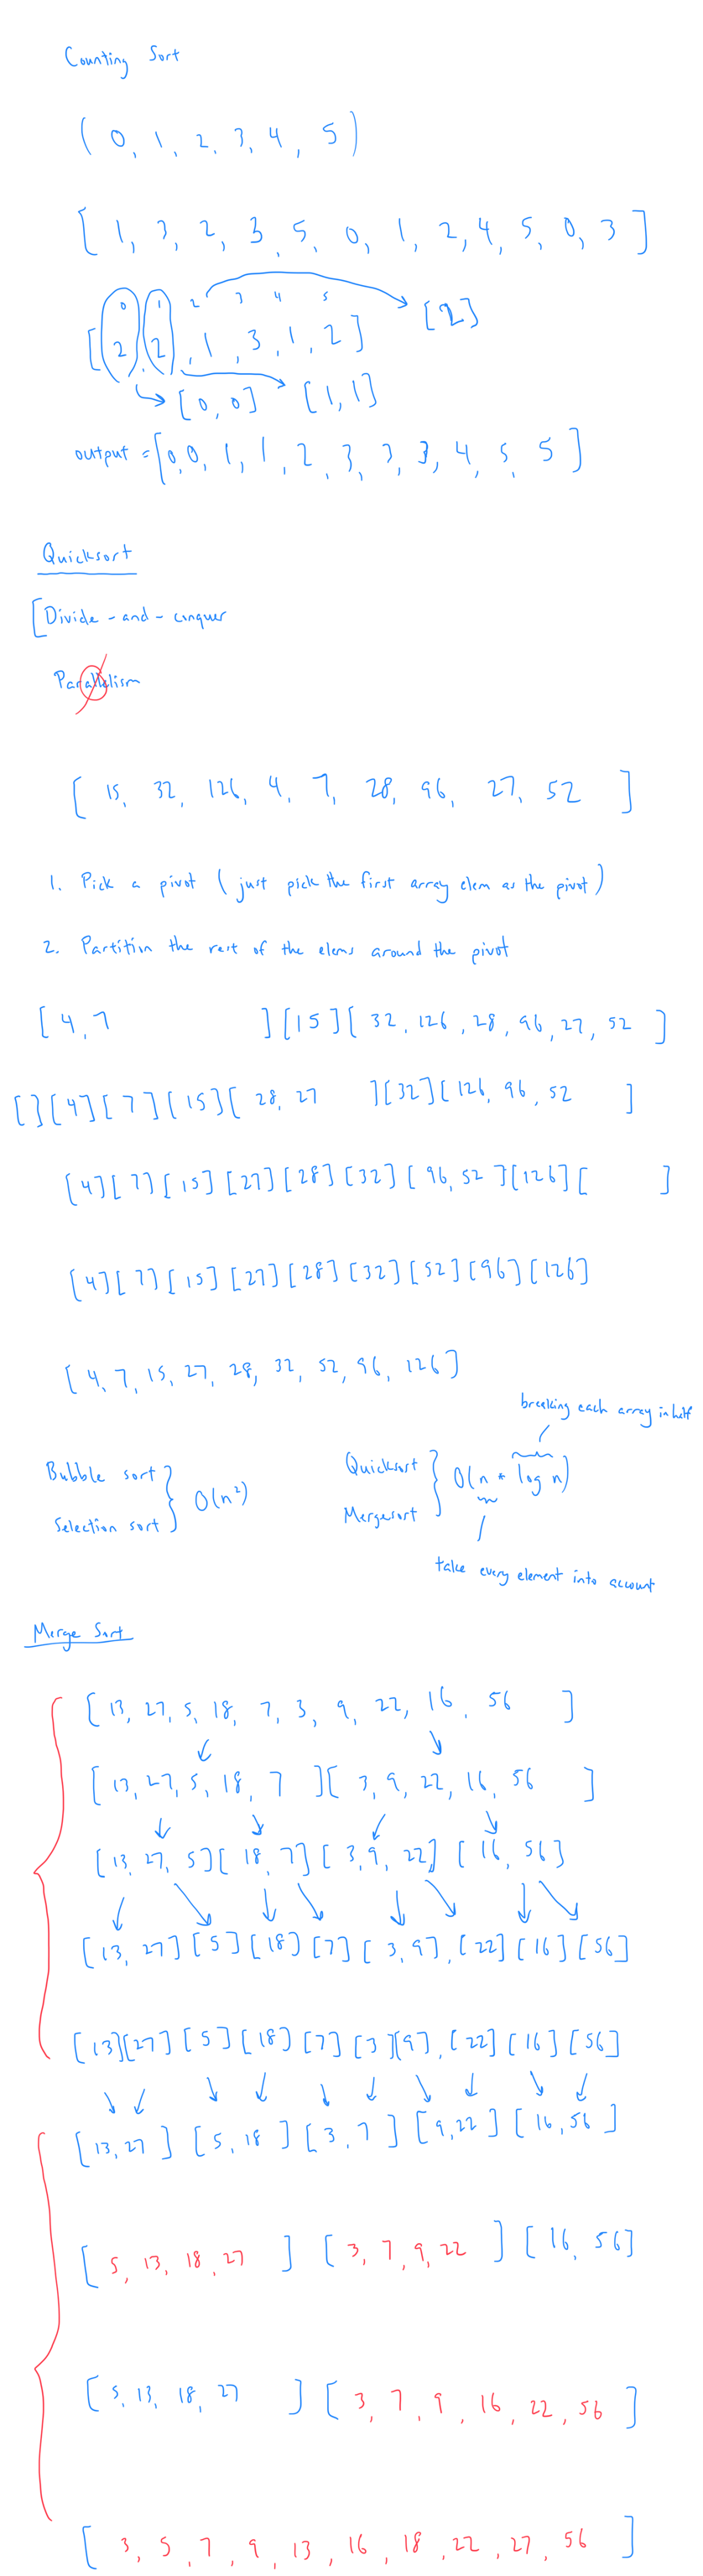 Counting Sort
(0, 1, 2, 3, 4, 5)
[1, 3, 2, 3, 5, 0, 1, 2, 4, 5, 0, 3]
0 1 2 3 4 5
[2, 2, 1, 3, 1, 2]
[2]
[0, 0] [1, 1]
output = [0, 0, 1, 1, 2, 3, 3, 3, 4, 5, 5]
Quicksort
[Divide-and-conquer
Parallelism
[15, 32, 126, 4, 7, 28, 96, 27, 52]
1. Pick a pivot (just pick the first array elem as the pivot)
2. Partition the rest of the elems around the pivot
[4, 7 ][15][32, 126, 28, 96, 27, 52]
[][4][7][15][28, 27 ][32][126, 96, 52 ]
[4][7][15][27][28][32][96, 52][126][ ]
[4][7][15][27][28][32][52][96][126]
[4, 7, 15, 27, 28, 32, 52, 96, 126]
breaking each array in half
Bubble sort
Selection sort
} O(n²)
Quicksort
Mergesort
} O(n * log n)
take every element into account
Merge Sort
[13, 27, 5, 18, 7, 3, 9, 22, 16, 56 ]
[13, 27, 5, 18, 7 ][3, 9, 22, 16, 56 ]
[13, 27, 5][18, 7][3, 9, 22][16, 56]
[13, 27][5][18][7][3, 9],[22][16][56]
[13][27][5][18][7][3][9],[22][16][56]
[13, 27][5, 18][3, 7][9, 22][16, 56]
[5, 13, 18, 27 ][3, 7, 9, 22 ][16, 56]
[5, 13, 18, 27 ][3, 7, 9, 16, 22, 56 ]
[3, 5, 7, 9, 13, 16, 18, 22, 27, 56 ]